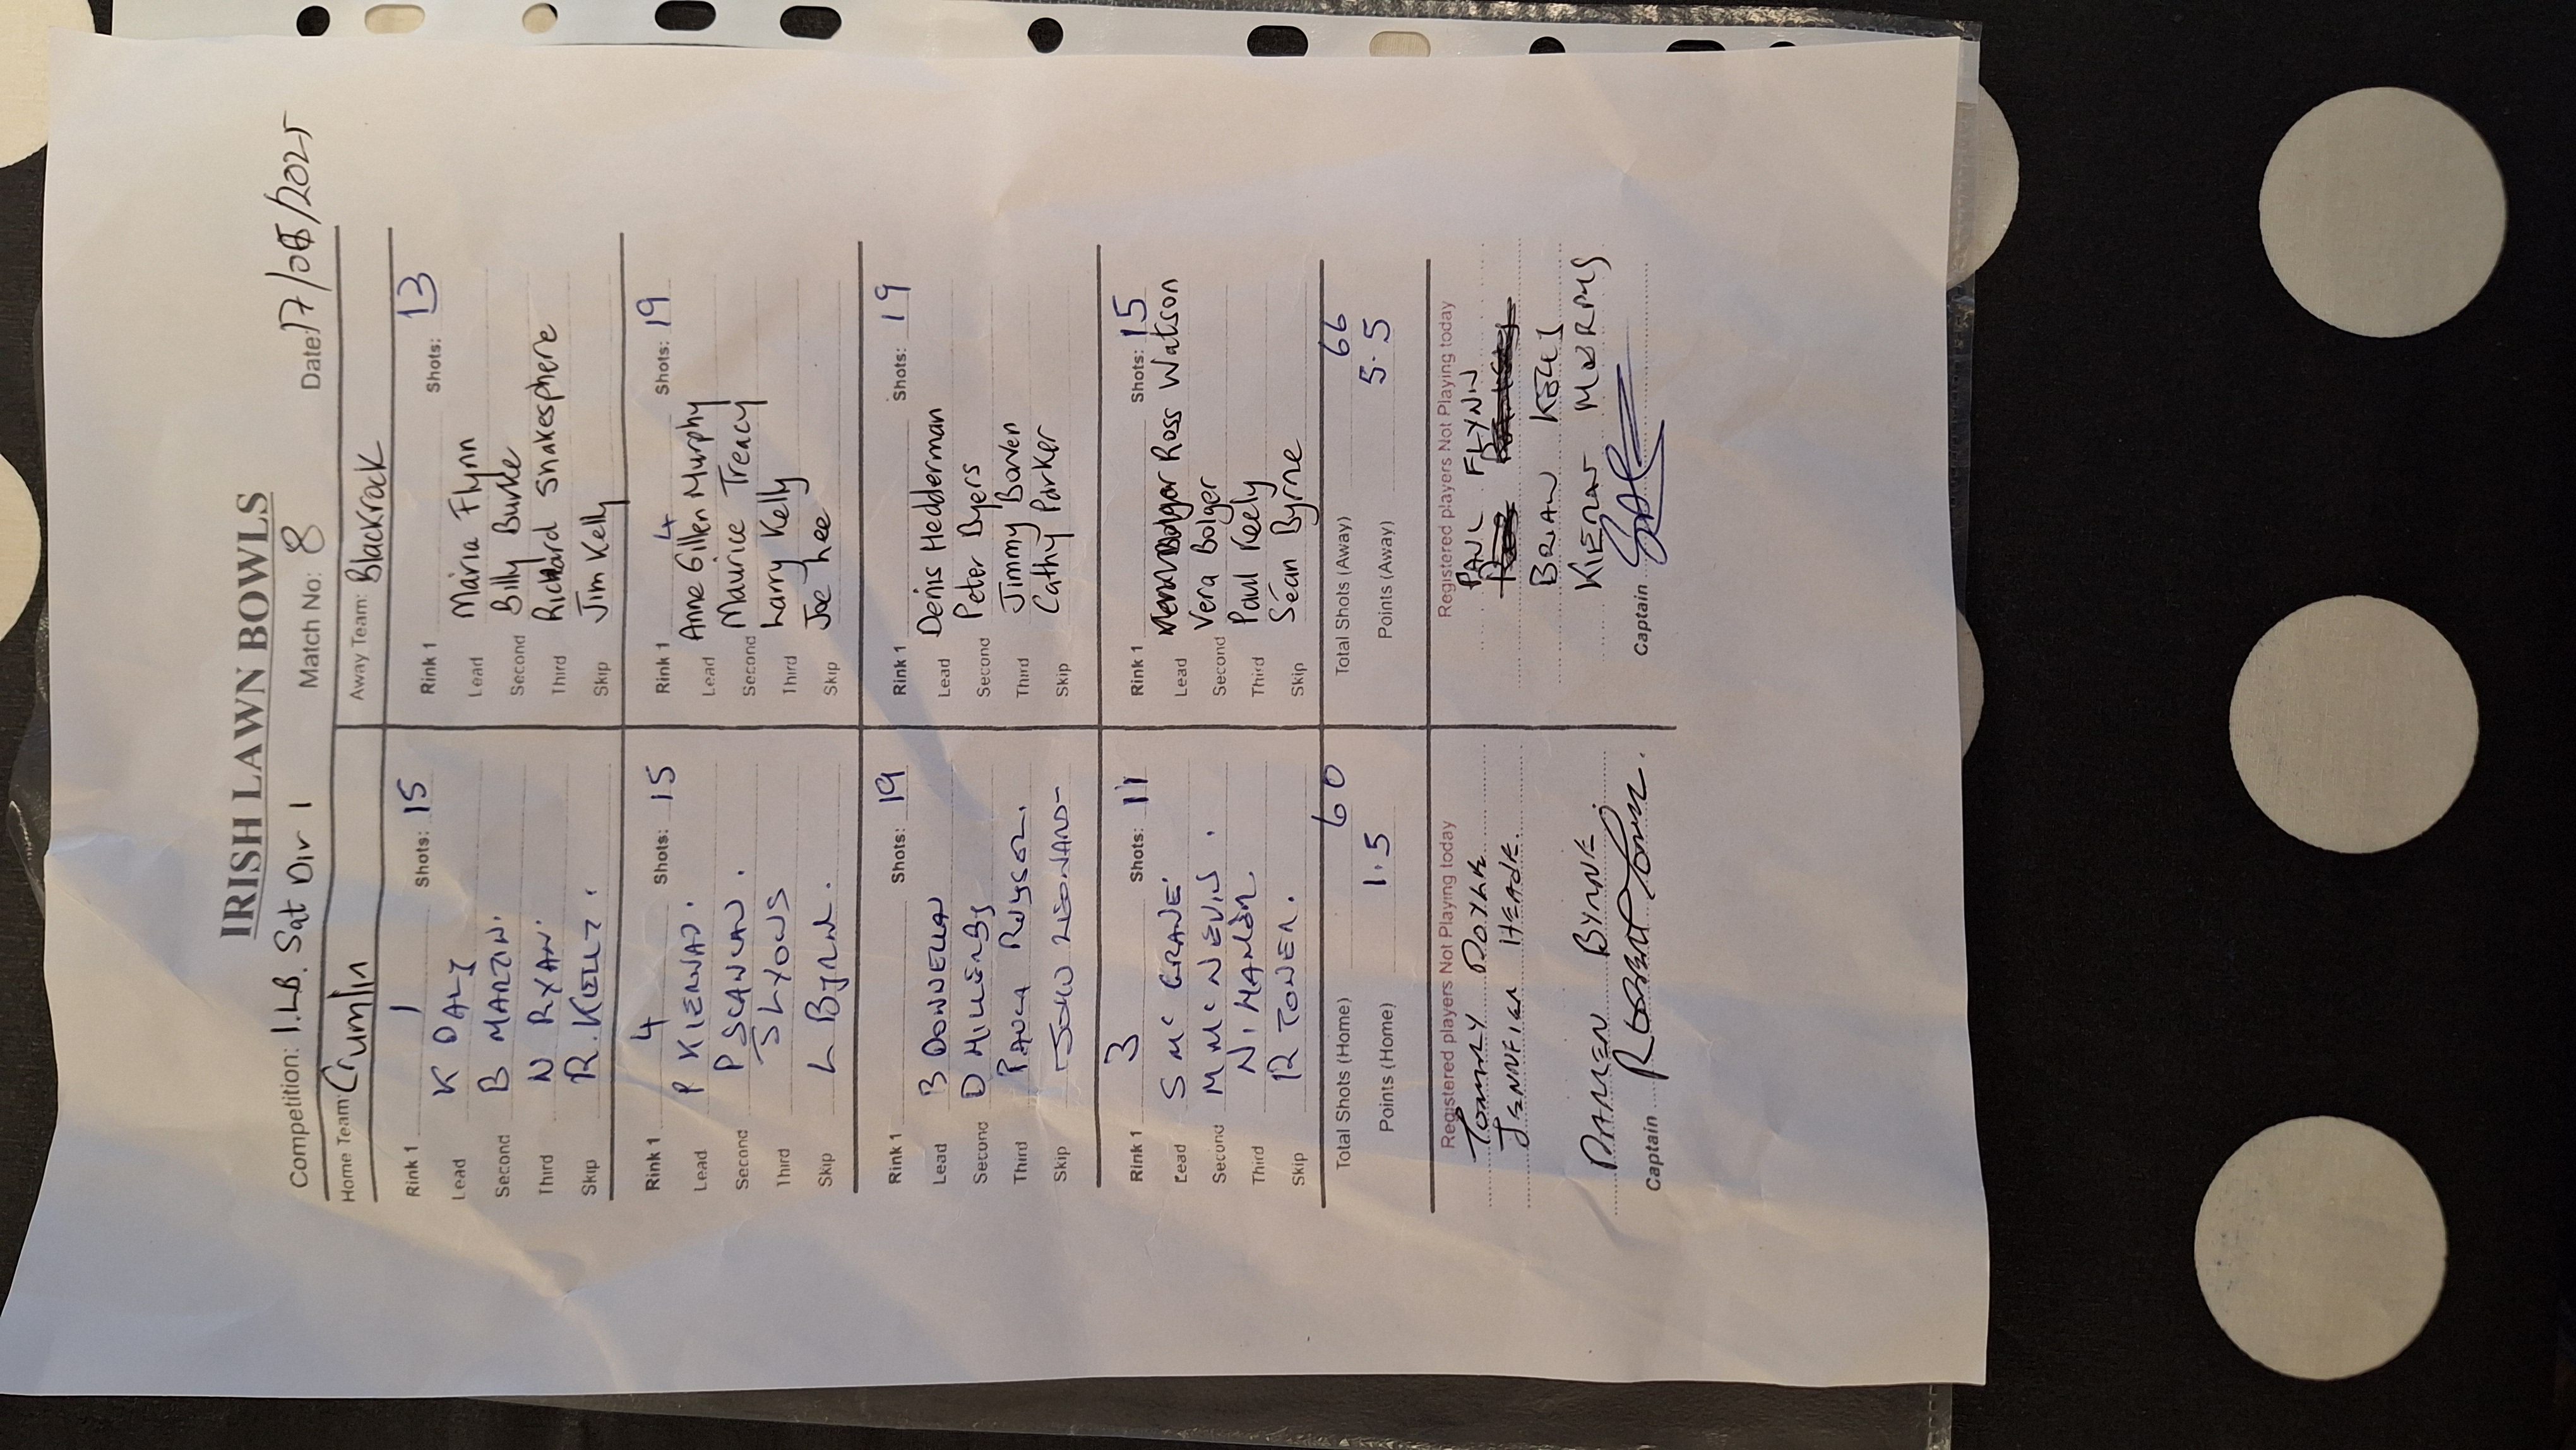 IRISH LAWN BOWLS
Competition: I.L.B. Sat Div 1 Match No: 8 Date: 17/05/2025
Home Team: Crumlin Away Team: Blackrock
Rink 1 1 Shots: 15 Rink 1 Shots: 13
Lead K DALY Lead Maria Flynn
Second B MARTIN. Second Billy Burke
Third N RYAN. Third Richard Shakesphere
Skip R. KELLY. Skip Jim Kelly
Rink 1 4 Shots: 15 Rink 1 4 Shots: 19
Lead P KIERNAN. Lead Anne Gillen Murphy
Second P SCANLAN. Second Maurice Treacy
Third S LYONS Third Larry Kelly
Skip L BYRNE. Skip Joe Lee
Rink 1 Shots: 19 Rink 1 Shots: 19
Lead B DONNELLAN Lead Denis Hedderman
Second D MILLENBY Second Peter Byers
Third Third Jimmy Bowen
Skip JOHN LEONARD Skip Cathy Parker
Rink 1 3 Shots: 11 Rink 1 Shots: 15
Lead S Mc GRANE Lead Ross Watson
Second M Mc NEVIN. Second Vera Bolger
Third N. HANLON. Third Paul Keely
Skip R TONER. Skip Séan Byrne
Total Shots (Home) 60 Total Shots (Away) 66
Points (Home) 1.5 Points (Away) 5.5
Registered players Not Playing today Registered players Not Playing today
TOMMY DOYLE PAUL FLYNN
JENNIFER HEADE.
BRIAN KELLY
DARREN BYRNE KIERAN MURPHY
Captain ROBERT Toner. Captain